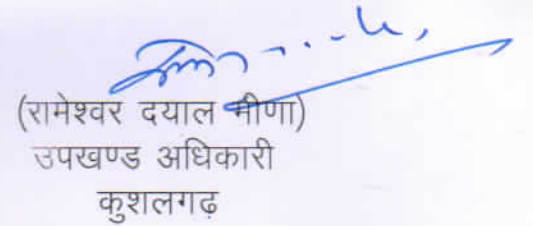 (रामेश्वर दयाल मीणा)
उपखण्ड अधिकारी
कुशलगढ़